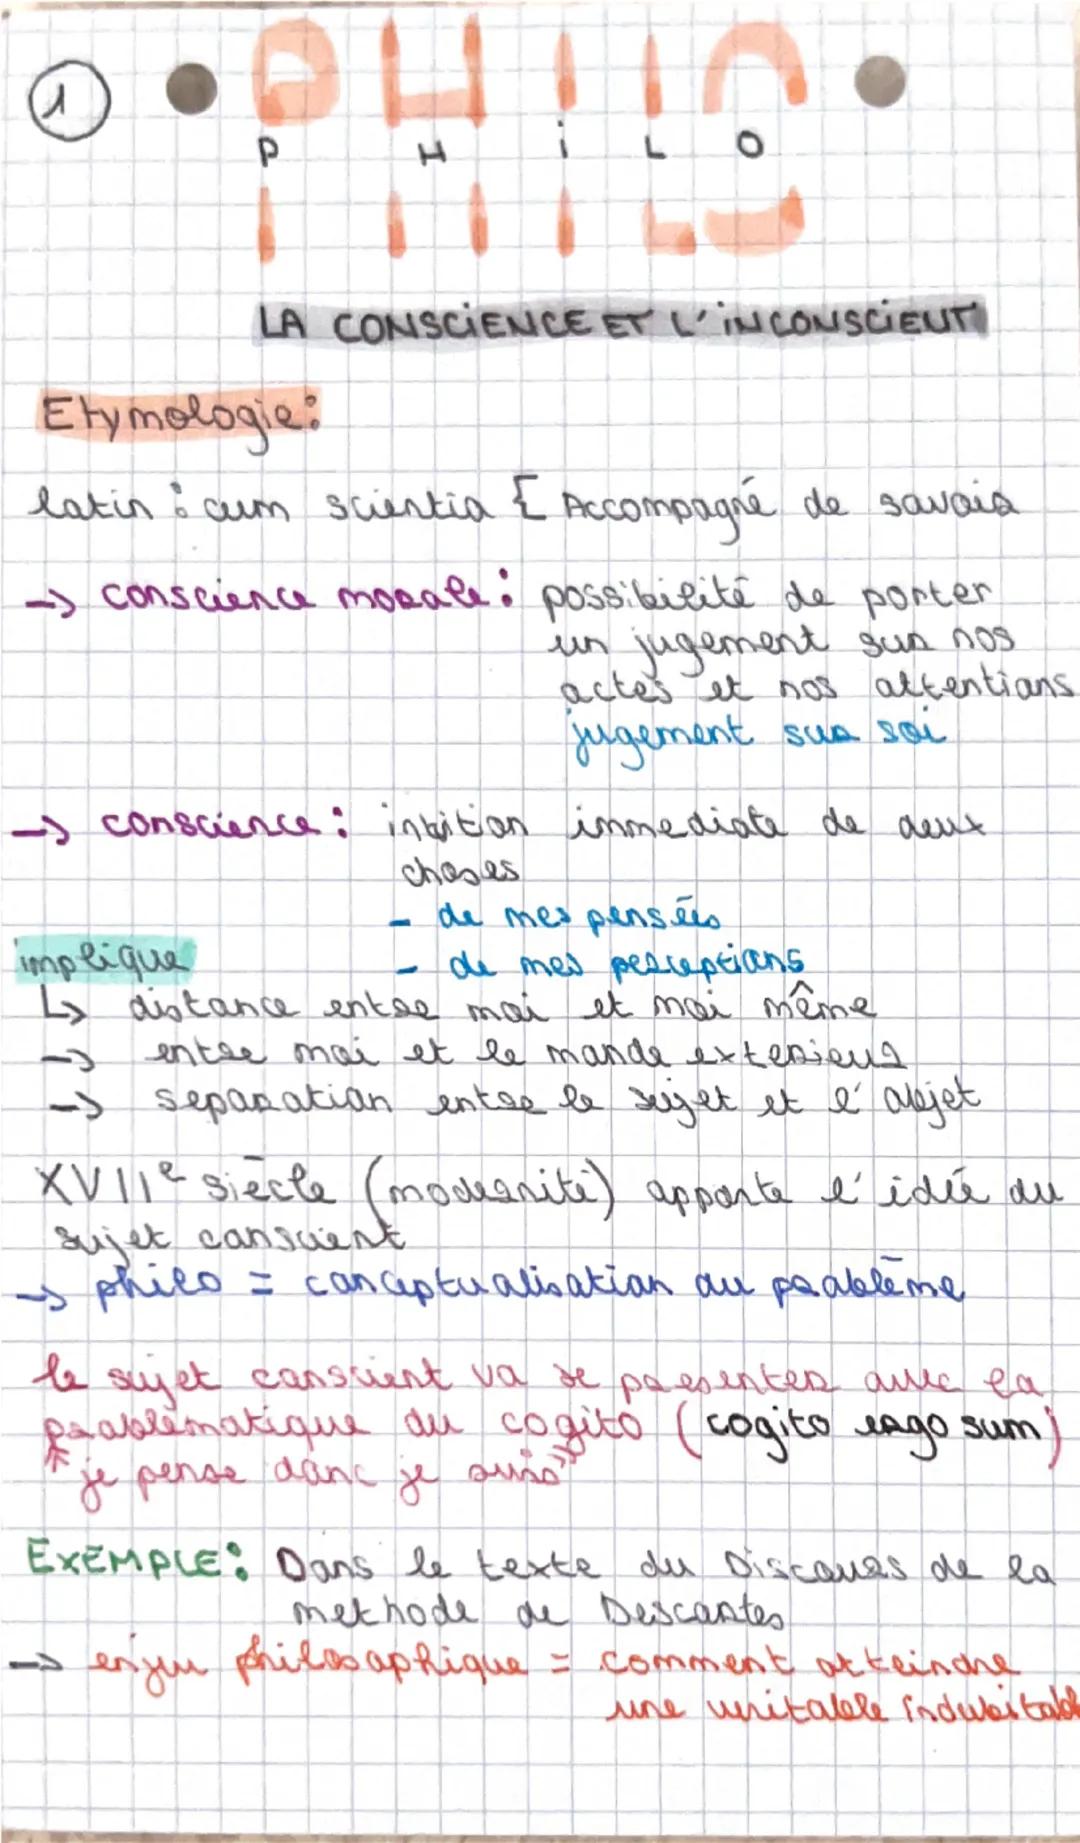 1
PHILO
P H i L O
LA CONSCiENCE ET L'iNCONSCiENT
Etymologie:
latin : cum scientia { Accompagné de savoir
-> conscience morale : possibilité de porter
un jugement sur nos
actes et nos attentions
jugement sur soi
-> conscience : intuition immediate de deux
choses
- de mes pensées
implique
- de mes perceptions
↳ distance entre moi et moi même
-> entre moi et le monde exterieur
-> separation entre le sujet et l'objet
XVIIe siècle (modernité) apporte l'idée du
sujet conscient
-> philo = conceptualisation du problème
le sujet conscient va se presenter avec la
problématique du cogito (cogito ergo sum)
"je pense donc je suis"
EXEMPLE : Dans le texte du Discours de la
methode de Descartes
-> enjeu philosophique = comment atteindre
une veritable indubitable